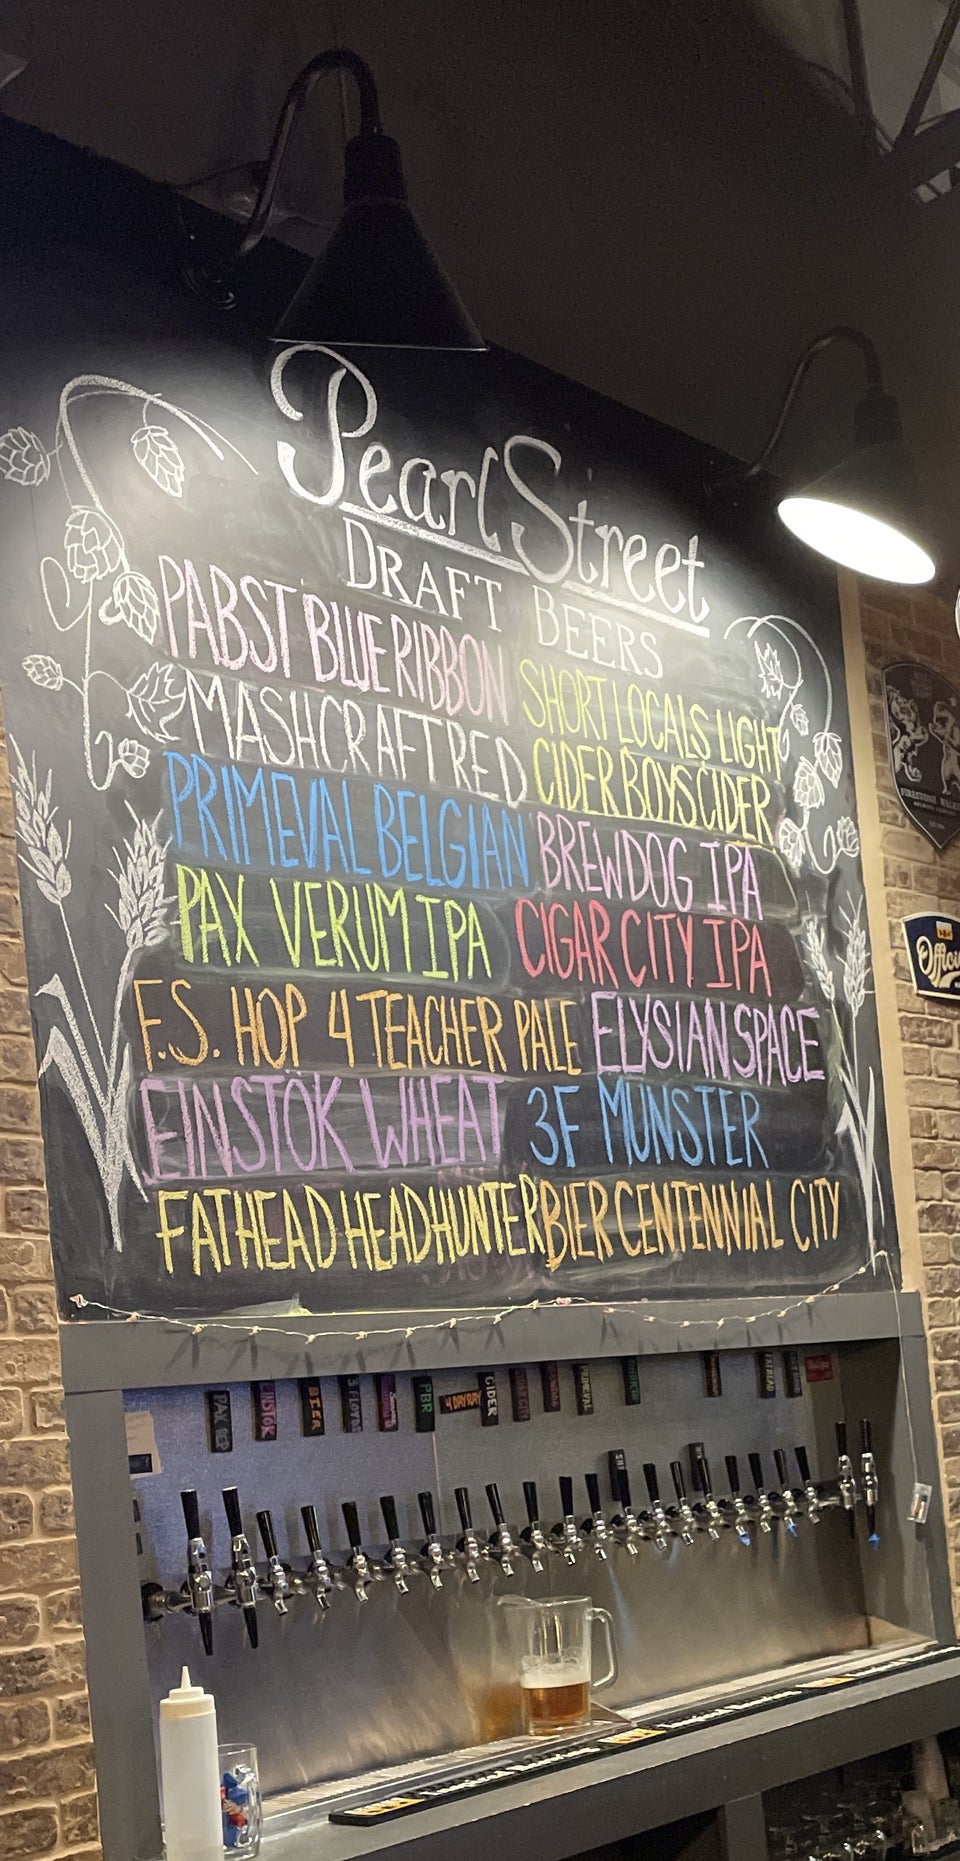 Pearl Street
DRAFT BEERS
PABST BLUE RIBBON
SHORT LOCALS LIGHT
MASHCRAFT RED
CIDERBOYS CIDER
PRIMEVAL BELGIAN
BREWDOG IPA
PAX VERUM IPA
CIGAR CITY IPA
F.S. HOP 4 TEACHER PALE
ELYSIAN SPACE
EINSTÖK WHEAT
3F MUNSTER
FATHEAD HEADHUNTER
BIER CENTENNIAL CITY
FIRESTONE WALKER
EINSTOK
BIER
3 FLOYDS
PBR
CIDER
PRIMEVAL
FATHEAD